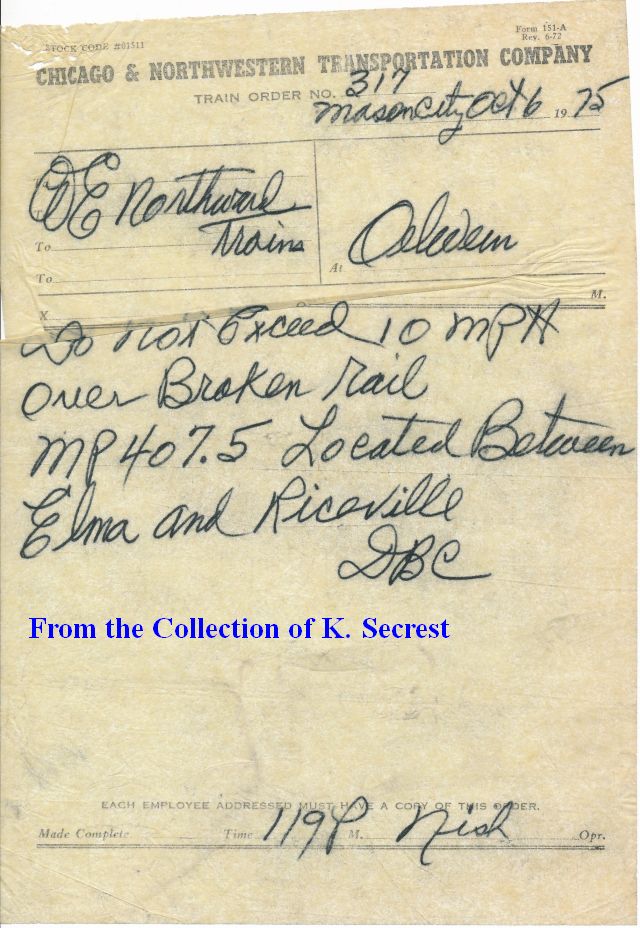 STOCK CODE #01511
Form 151-A
Rev. 6-72
CHICAGO & NORTHWESTERN TRANSPORTATION COMPANY
TRAIN ORDER NO. 317
Mason City Oct 6 1975
C&E Northward
Trains
To
At Oelwein
To
X
M.
Do not Exceed 10 MPH
Over Broken rail
MP 407.5 Located Between
Elma and Riceville
DBC
From the Collection of K. Secrest
EACH EMPLOYEE ADDRESSED MUST HAVE A COPY OF THIS ORDER.
Made Complete Time 119P M. Nish Opr.